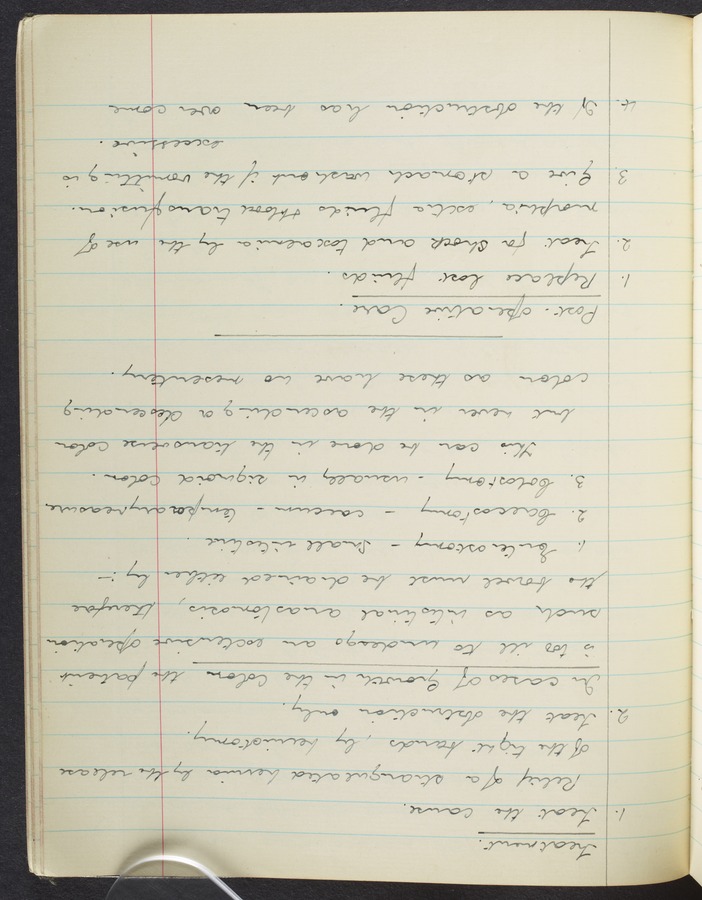 Treatment.
1. Treat the cause.
Relief of a strangulated hernia by the release
of the tight bands, by herniotomy.
2. Treat the obstruction only.
In cases of growth in the colon the patient
is too ill to undergo an extensive operation
such as intestinal anastomosis, therefore
the bowel must be drained either by :-
1. Enterostomy - small intestine.
2. Caecostomy - caecum - temporary measure
3. Colostomy - usually in sigmoid colon.
This can be done in the transverse colon
but never in the ascending or descending
colon as these have no mesentery.
Post-operative Care.
1. Replace lost fluids.
2. Treat for shock and toxaemia by the use of
morphia, extra fluids & blood transfusion.
3. Give a stomach washout if the vomiting is
excessive.
4. If the obstruction has been over come